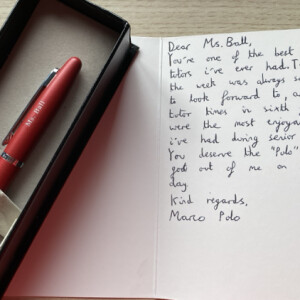 Ms. Ball
Dear Ms. Ball,
You're one of the best
tutors i've ever had.
the week was always
to look forward to,
tutor times in sixth
were the most
i've had during senior
You deserve the "Polo"
out of me on
day
Kind regards,
Marco Polo